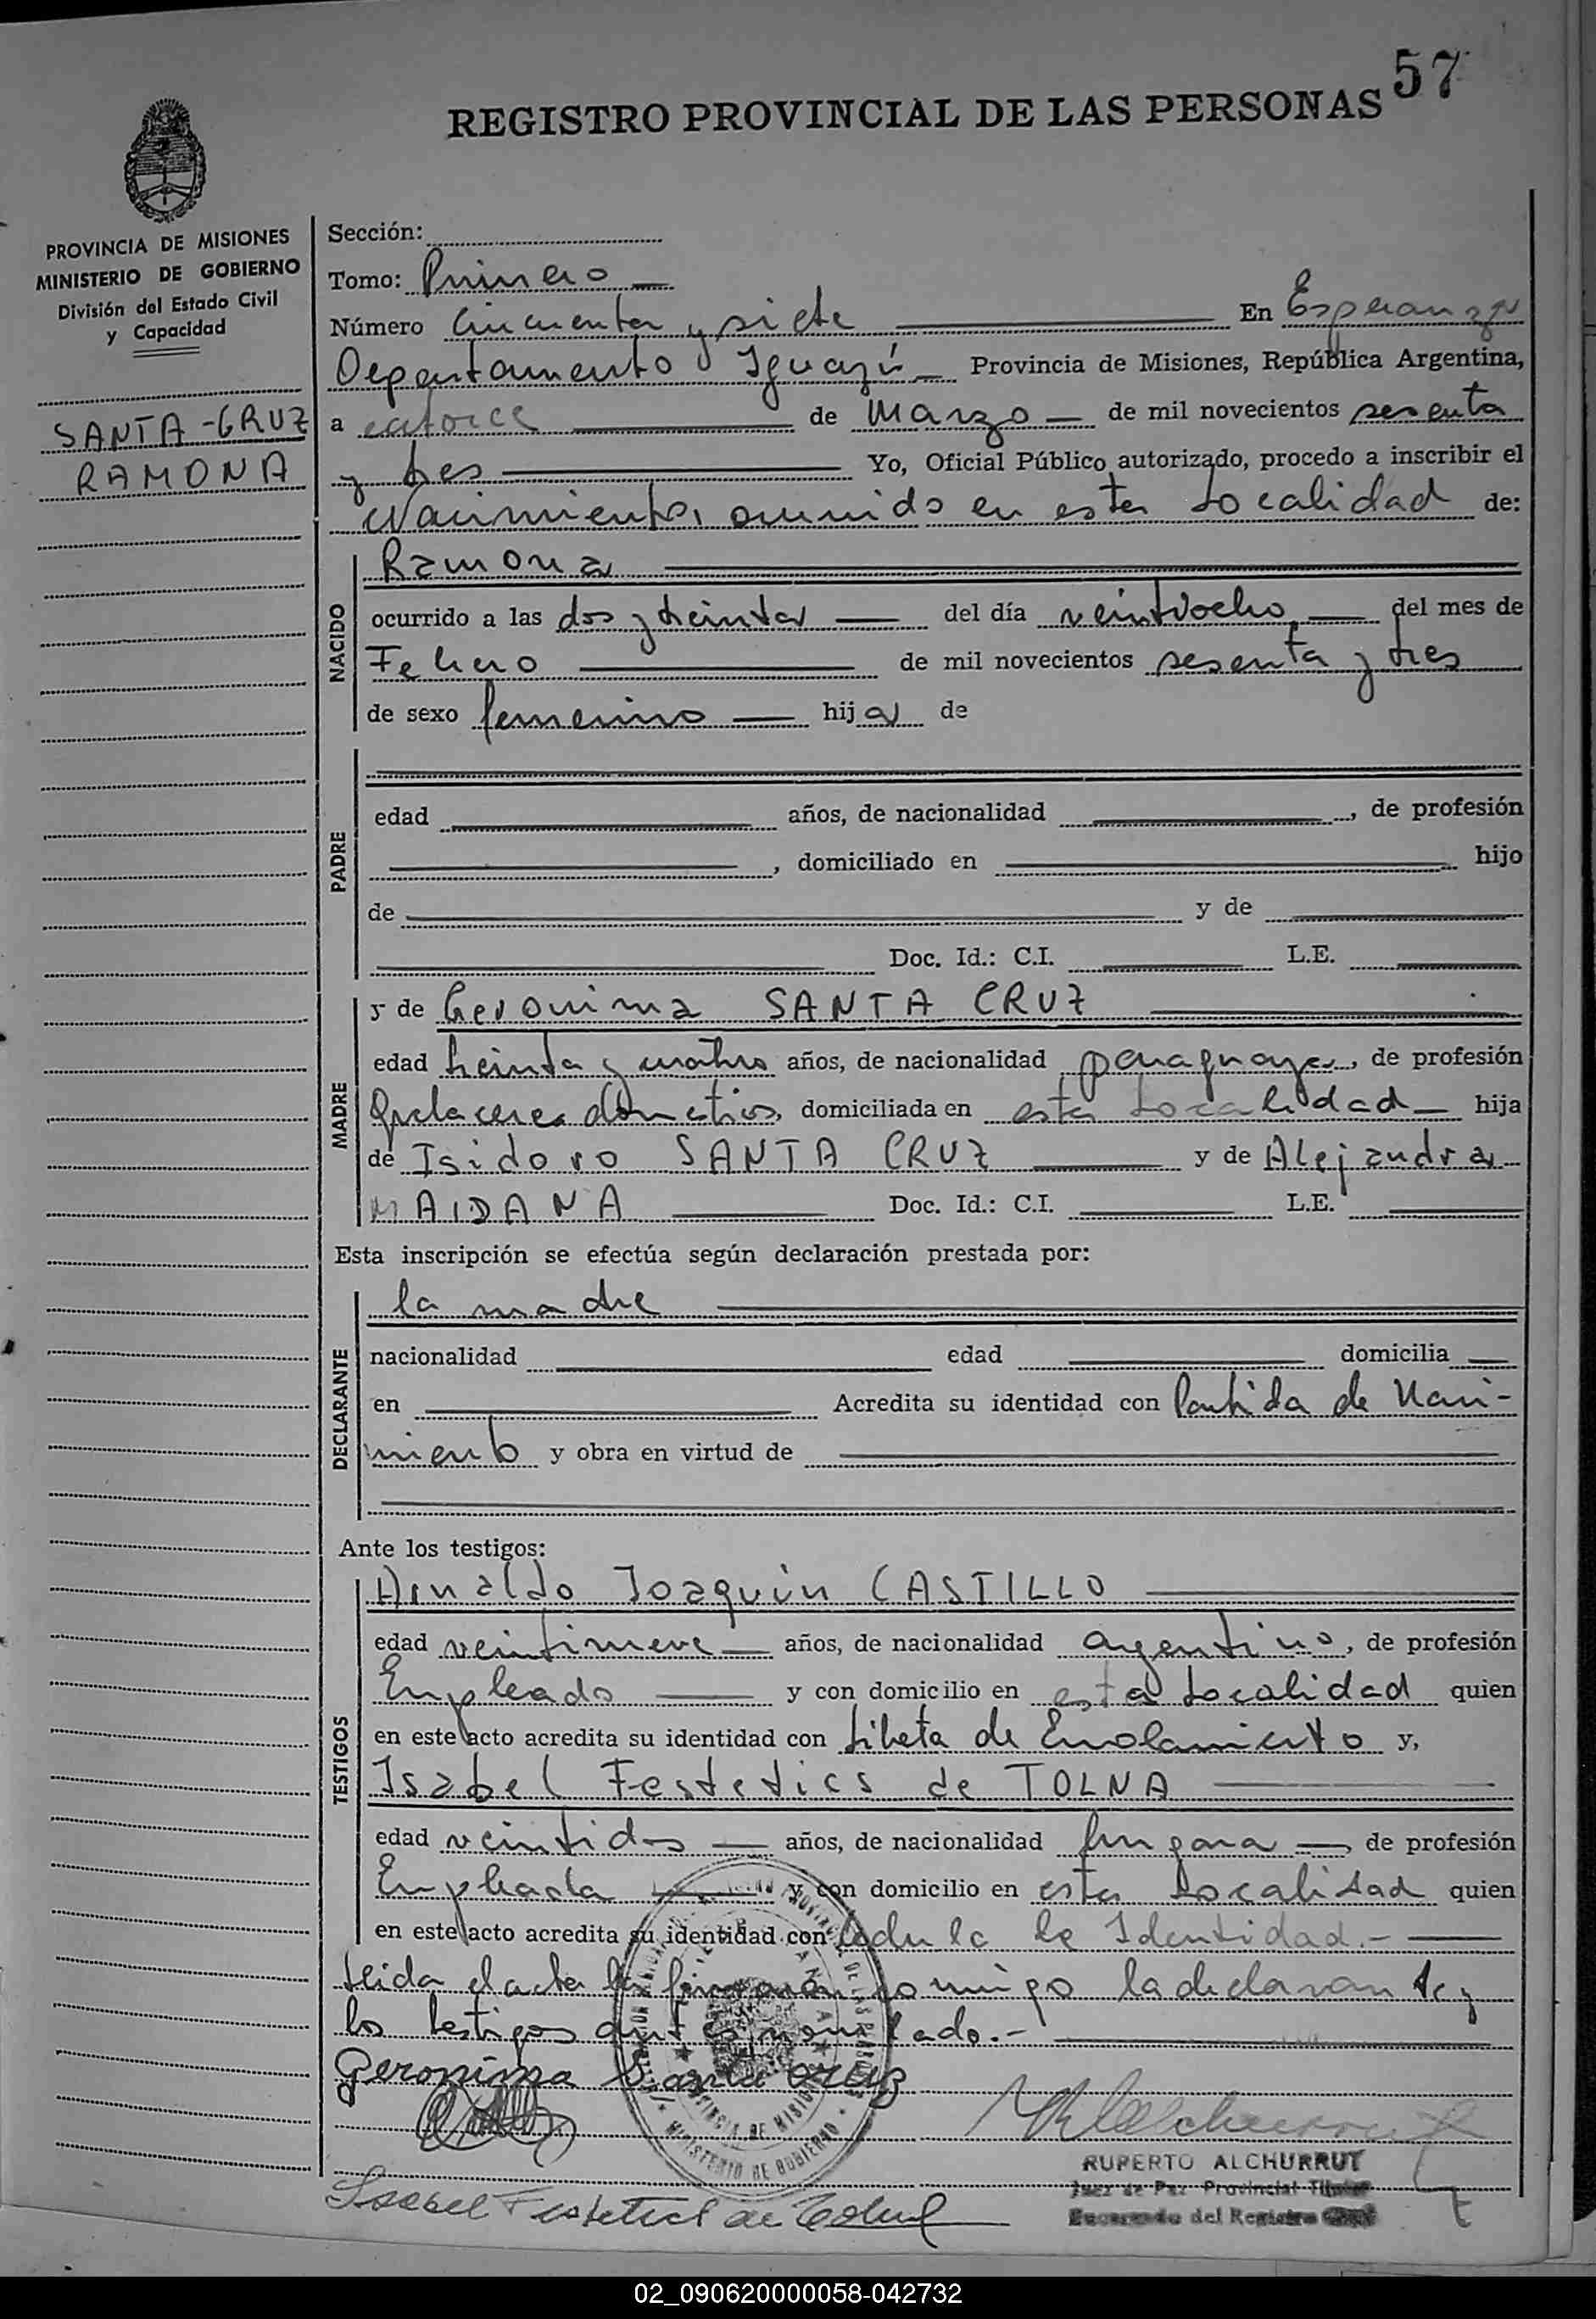 57
REGISTRO PROVINCIAL DE LAS PERSONAS
PROVINCIA DE MISIONES
MINISTERIO DE GOBIERNO
División del Estado Civil
y Capacidad
SANTA-CRUZ
RAMONA
Sección:
Tomo: Primero
Número Cincuenta y siete En Esperanza
Departamento Iguazú Provincia de Misiones, República Argentina,
a catorce de Marzo de mil novecientos sesenta
y tres Yo, Oficial Público autorizado, procedo a inscribir el
Nacimiento, ocurrido en esta Localidad de:
NACIDO
Ramona
ocurrido a las dos y treinta del día veintiocho del mes de
Febrero de mil novecientos sesenta y tres
de sexo femenino hija de
PADRE
edad años, de nacionalidad , de profesión
, domiciliado en hijo
de y de
Doc. Id.: C.I. L.E.
MADRE
y de Geronima SANTA CRUZ
edad treinta y cuatro años, de nacionalidad paraguaya, de profesión
Quehaceres domesticos, domiciliada en esta Localidad hija
de Isidoro SANTA CRUZ y de Alejandra
MAIDANA Doc. Id.: C.I. L.E.
Esta inscripción se efectúa según declaración prestada por:
DECLARANTE
la madre
nacionalidad edad domicilia
en Acredita su identidad con Partida de Naci-
miento y obra en virtud de
Ante los testigos:
TESTIGOS
Arnaldo Joaquin CASTILLO
edad veintinueve años, de nacionalidad argentino, de profesión
Empleado y con domicilio en esta Localidad quien
en este acto acredita su identidad con Libreta de Enrolamiento y,
Isabel Festetics de TOLNA
edad veintidos años, de nacionalidad hungara de profesión
Empleada y con domicilio en esta Localidad quien
en este acto acredita su identidad con Cedula de Identidad.-
Leida el acta la firmaron conmigo la declarante y
los testigos antes mencionado.-
Geronima Santa Cruz
MINISTERIO DE GOBIERNO
PROVINCIA DE MISIONES
RUPERTO ALCHURRUT
Juez de Paz Provincial Titular
Encargado del Registro Civil
Isabel Festetics de Tolna
02_090620000058-042732